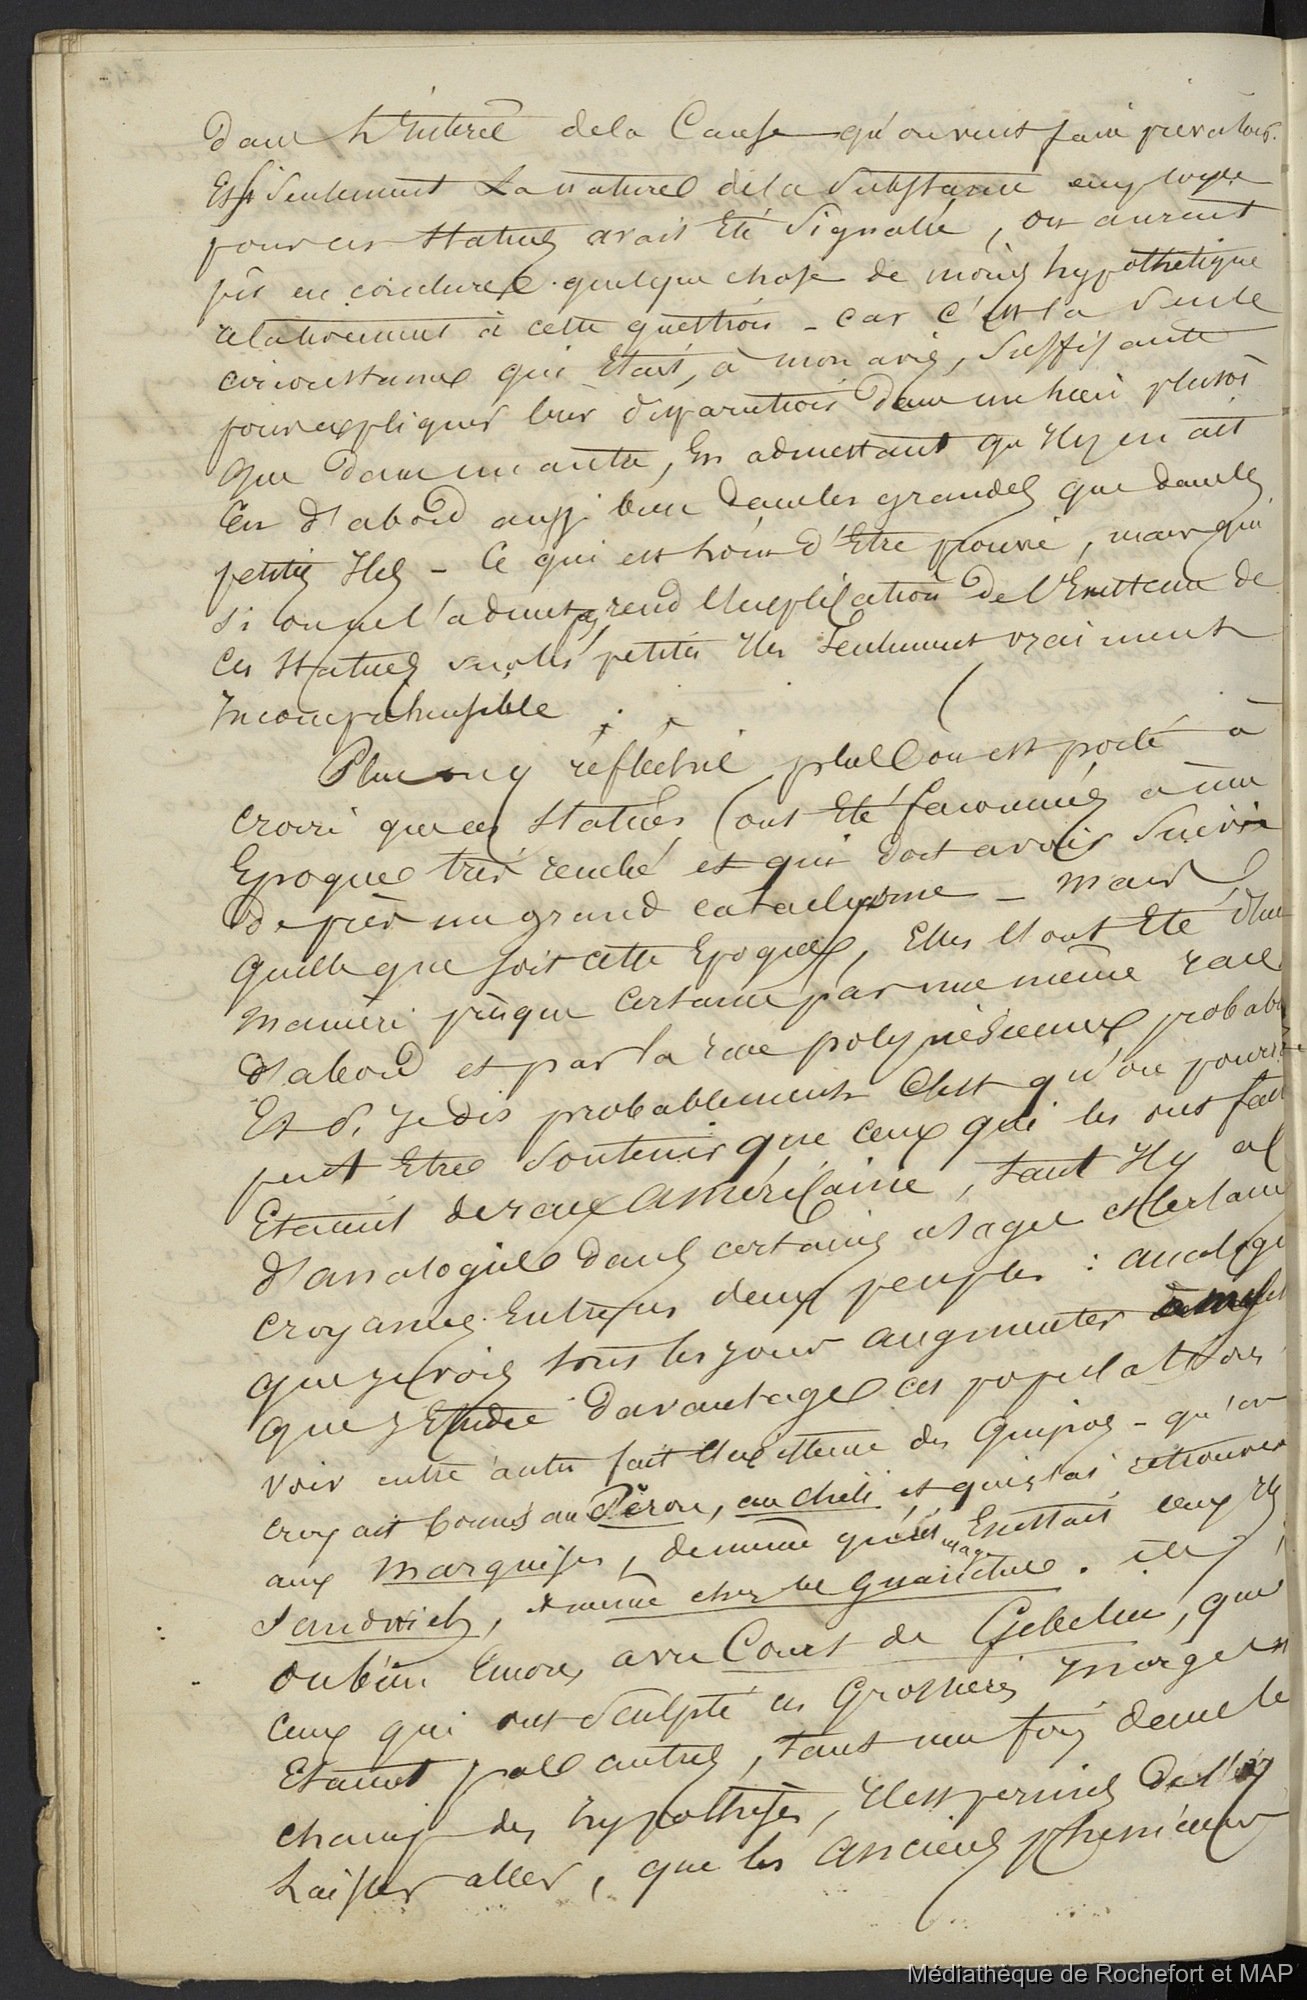 dans l'interêt de la Cause qu'on veut faire prevaloir.
Et si seulement la nature de la substance employée
pour ces statues avait été signalée, on auroit
pu en conclure quelque chose de moins hypothétique
relativement à cette question - car c'est la seule
circonstance qui était, à mon avis, suffisante
pour expliquer leur disparution dans un lieu plutôt
que dans un autre, en admettant qu'il y en ait
eu d'abord aussi bien dans les grandes que dans les
petites Iles - Ce qui est loin d'être prouvé, mais qui
si on ne l'admet pas, rend l'explication de l'existence de
ces statues sur les petites Iles seulement vraiment
incompréhensible.
Plus on y réfléchit plus on est porté à
croire que ces statues ont été façonnées à une
Epoque très reculé et qui doit avoir suivie
de près un grand cataclysme - mais
quelle que soit cette Epoque, Elles l'ont été d'une
manière presque certaine par une même race
d'abord et par la race polynésienne probable
Et si je dis probablement C'est qu'on pourrait
peut être soutenir que ceux qui les ont fait
Etaient de race américaine, tant il y a
d'analogie dans certains usages et certaines
croyances entre ces deux peuples : analogie
que je vois tous les jours augmenter à mesure
que j'Etudie davantage ces populations
voir entre autre fait l'existence des Quipos - qu'on
croyait bornés au Pérou, au chili et que j'ai retrouvés
aux marquises, de même qu'ils Existait aux Iles
Sandwich, et même chez les Guanches.
ou bien Encore, avec Court de Gebelin, que
ceux qui ont sculpté ces Grossieres images n
Etaient pas autres, tant une fois dans le
champ des hypothèses, il est permis de s'y
laisser aller, que les anciens phéniciens
Médiathèque de Rochefort et MAP